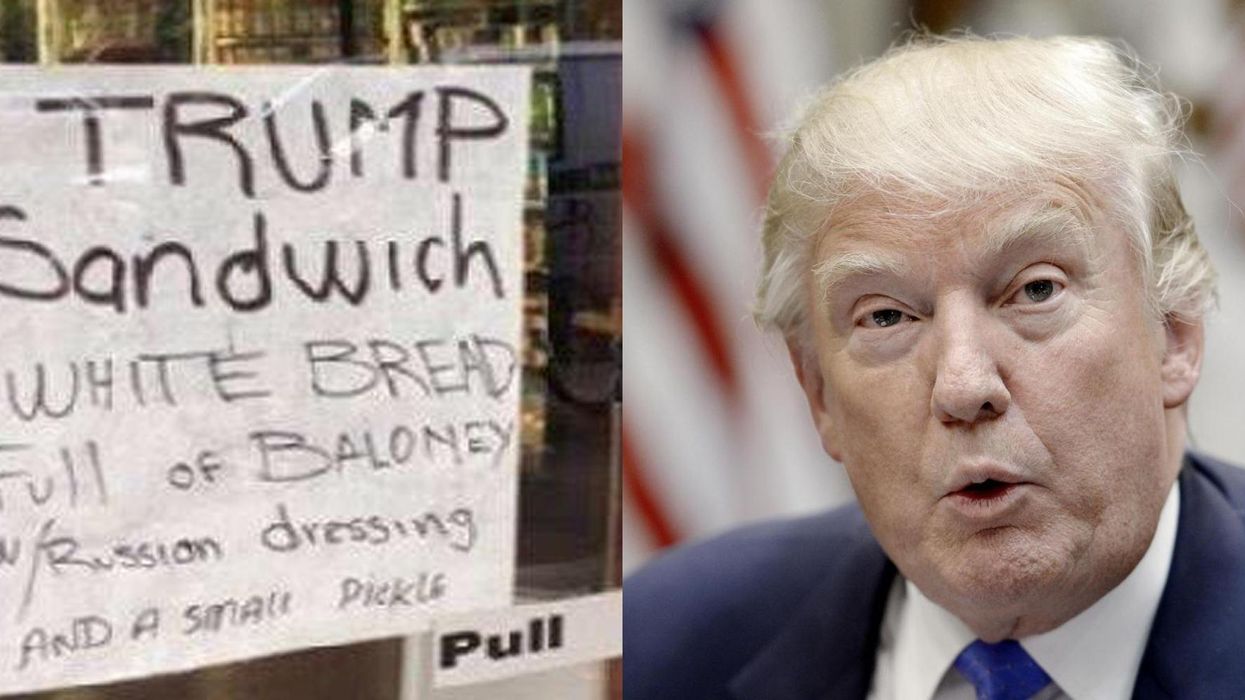 TRUMP
Sandwich
WHITE BREAD
Full of BALONEY
w/Russion dressing
AND A SMAll PICKLE
Pull